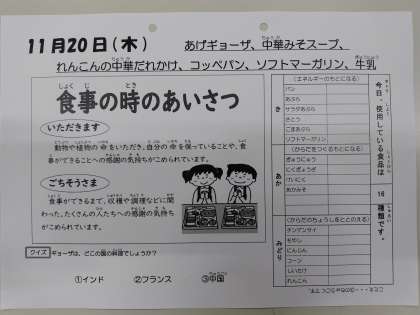 11月20日(木)
あげギョーザ、中華みそスープ、
れんこんの中華だれかけ、コッペパン、ソフトマーガリン、牛乳
食事の時のあいさつ
いただきます
動物や植物の命をいただき、自分の命を保っていることや、食
事ができることへの感謝の気持ちがこめられています。
ごちそうさま
食事ができるまで、収穫や調理などに関
わった、たくさんの人たちへの感謝の気持ち
がこめられています。
クイズ ギョーザは、どこの国の料理でしょうか?
①インド ②フランス ③中国
今日、使用している食品は 16 種類です。
き
(エネルギーのもとになる)
パン
あぶら
サラダあぶら
さとう
ごまあぶら
ソフトマーガリン
あか
(からだをつくるもとになる)
ぎゅうにゅう
にくぎょうざ
けいにく
あかみそ
みどり
(からだのちょうしをととのえる)
チンゲンサイ
もやし
にんじん
コーン
しいたけ
れんこん